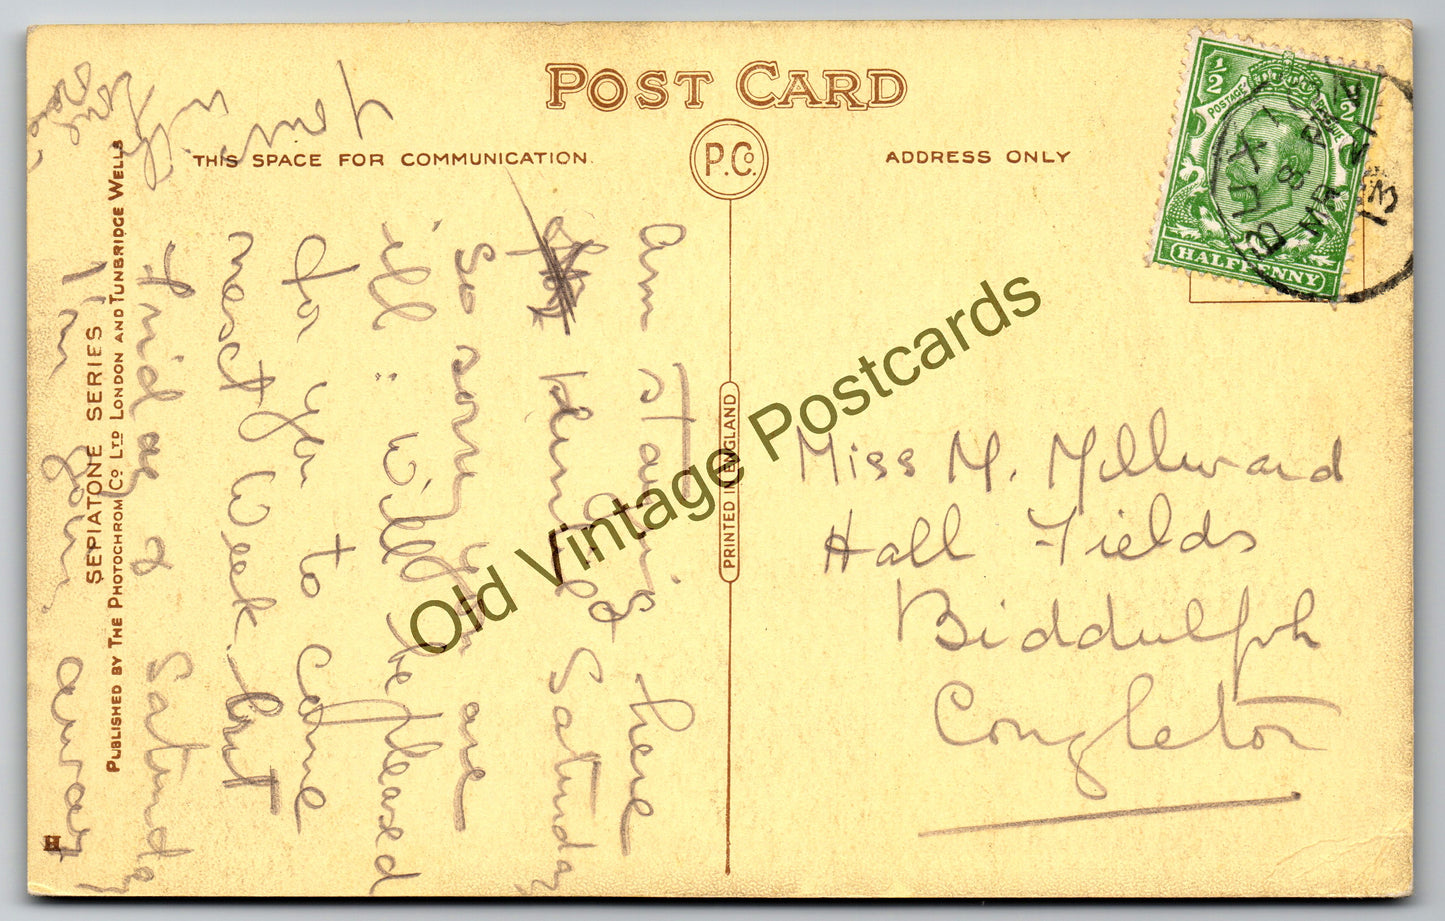 POST CARD
THIS SPACE FOR COMMUNICATION.
P. Co.
ADDRESS ONLY
½ ½
POSTAGE REVENUE
HALFPENNY
BUXTON
8 PM
MR 21
13
Am staying here
till Saturday
So sorry you are
ill. Will be pleased
for you to come
next Week. but
Friday & Saturday
I'm going away
Yours
with
love
PRINTED IN ENGLAND
SEPIATONE SERIES
PUBLISHED BY THE PHOTOCHROM CO. LTD. LONDON AND TUNBRIDGE WELLS
H
Miss M. Millward
Hall Fields
Biddulph
Congleton
Old Vintage Postcards